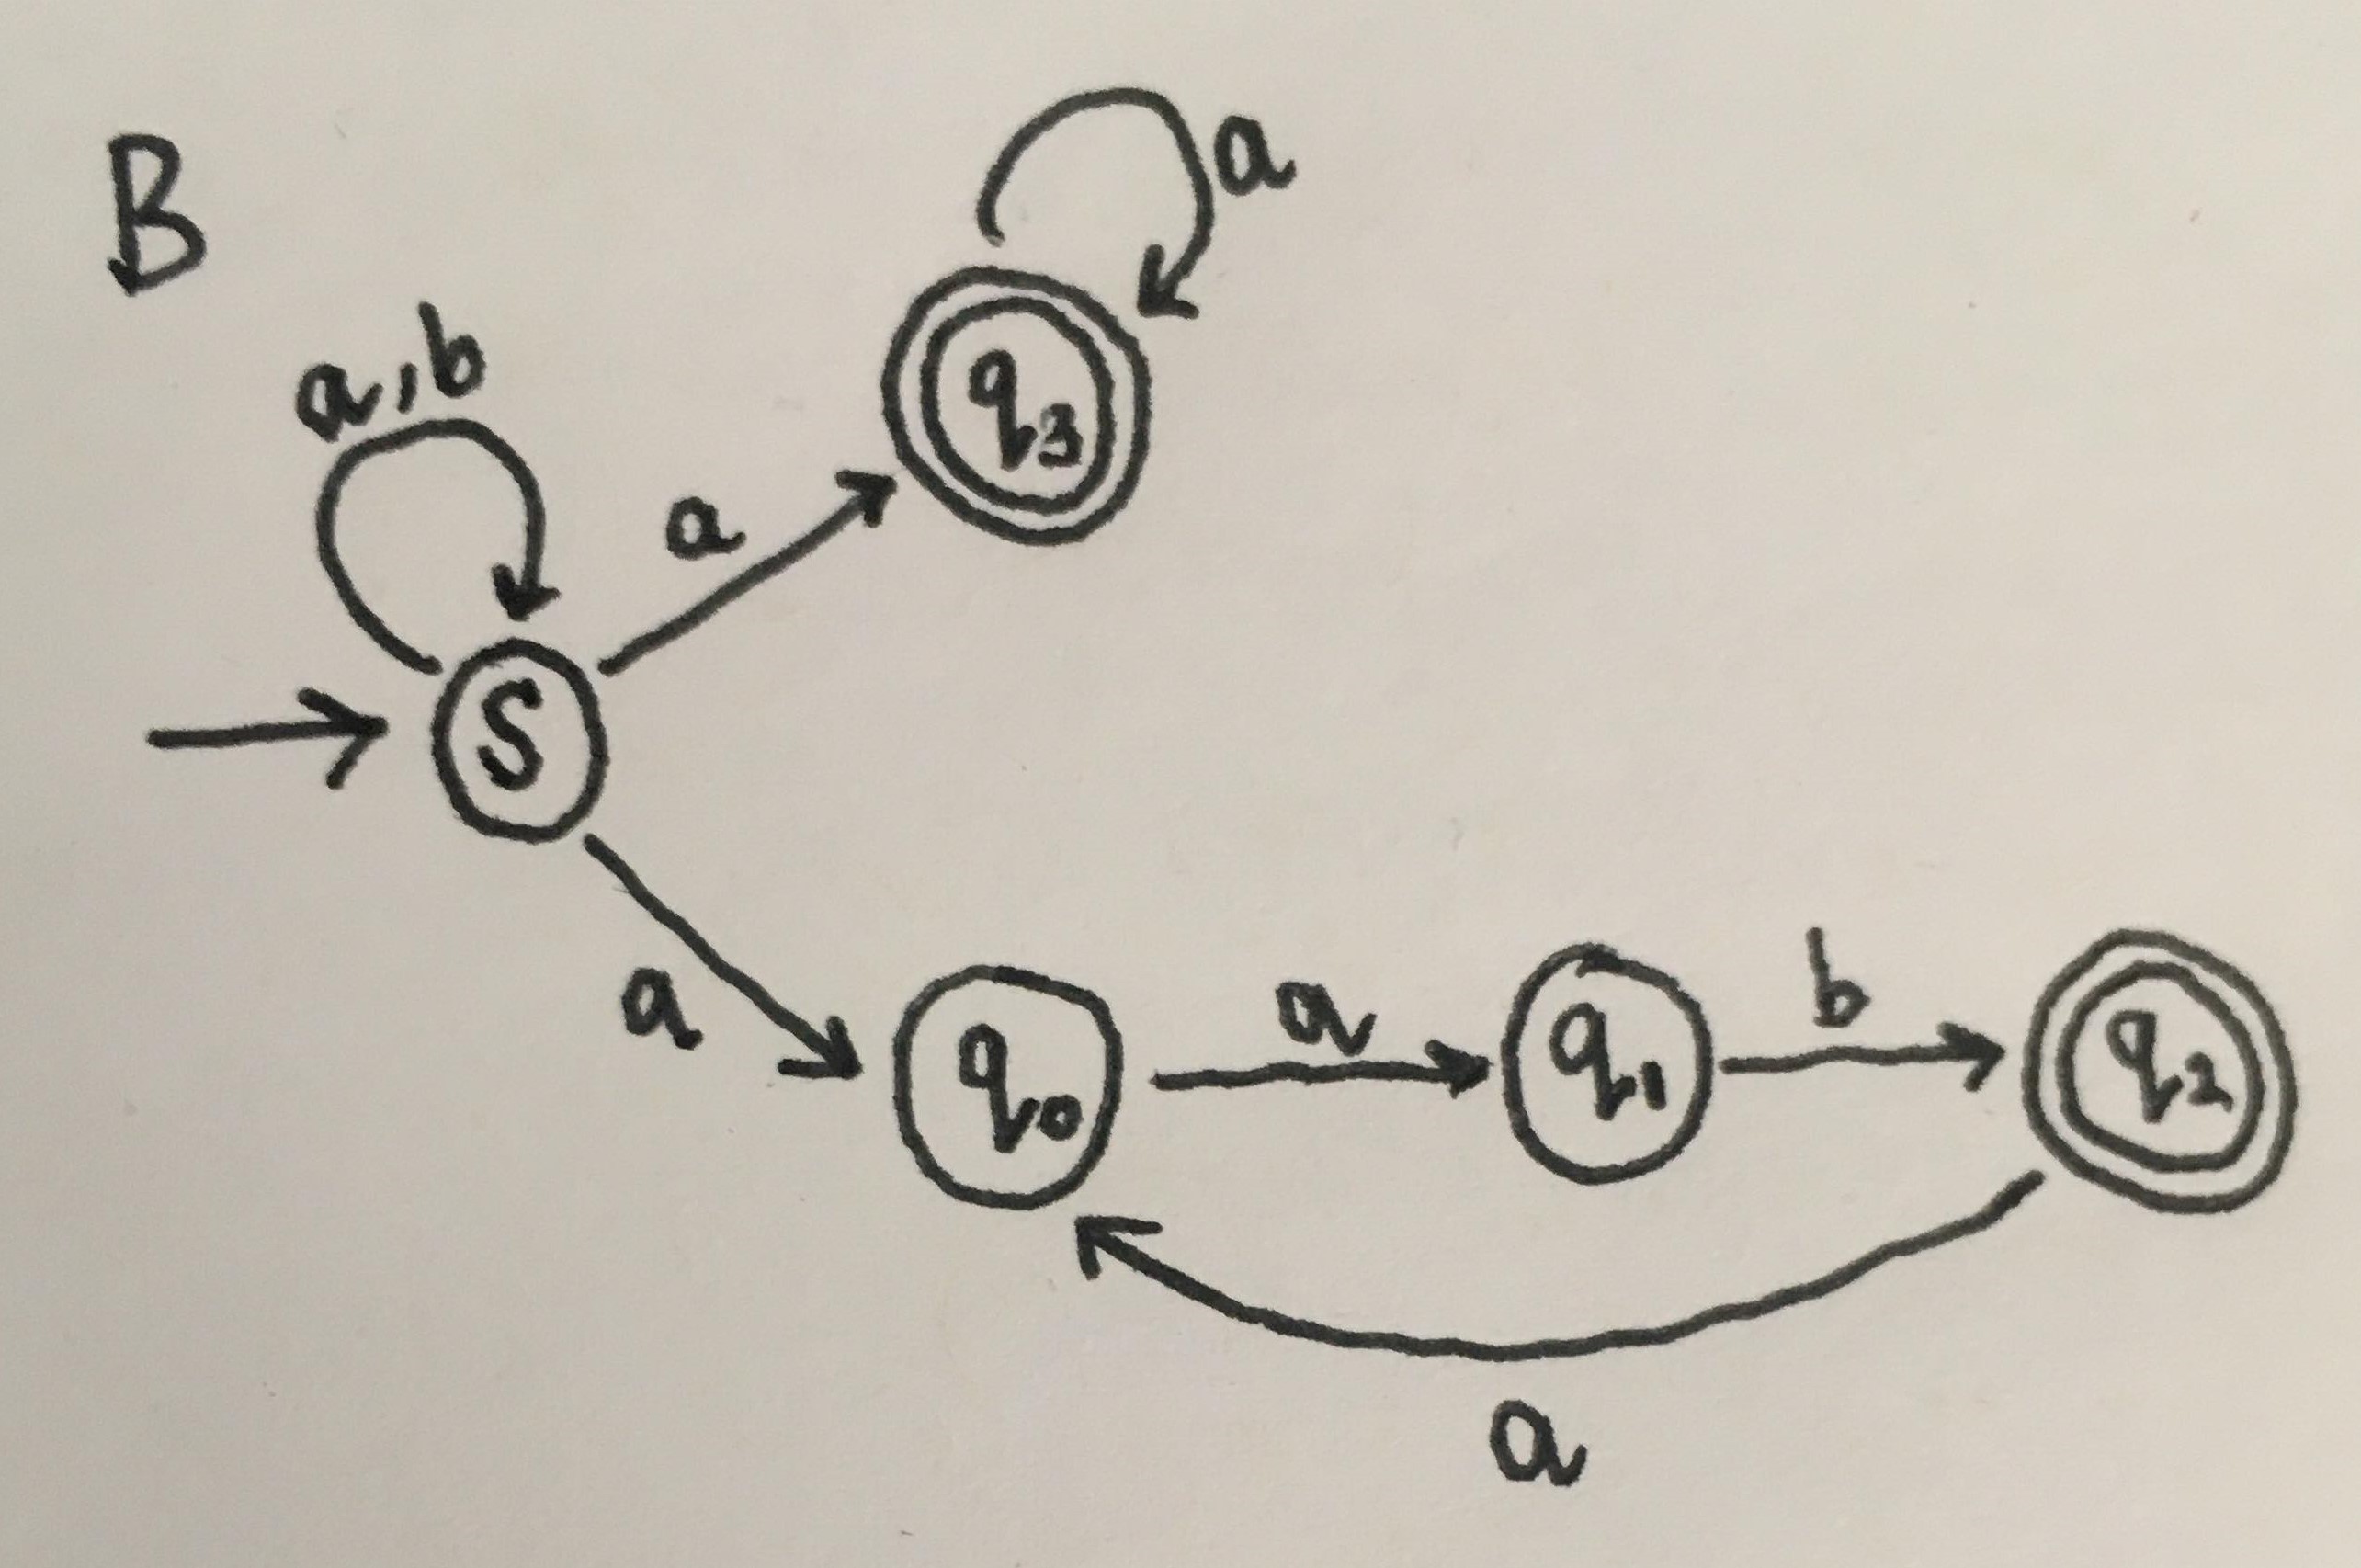 B
a
a,b
q3
a
S
a
q0
a
q1
b
q2
a